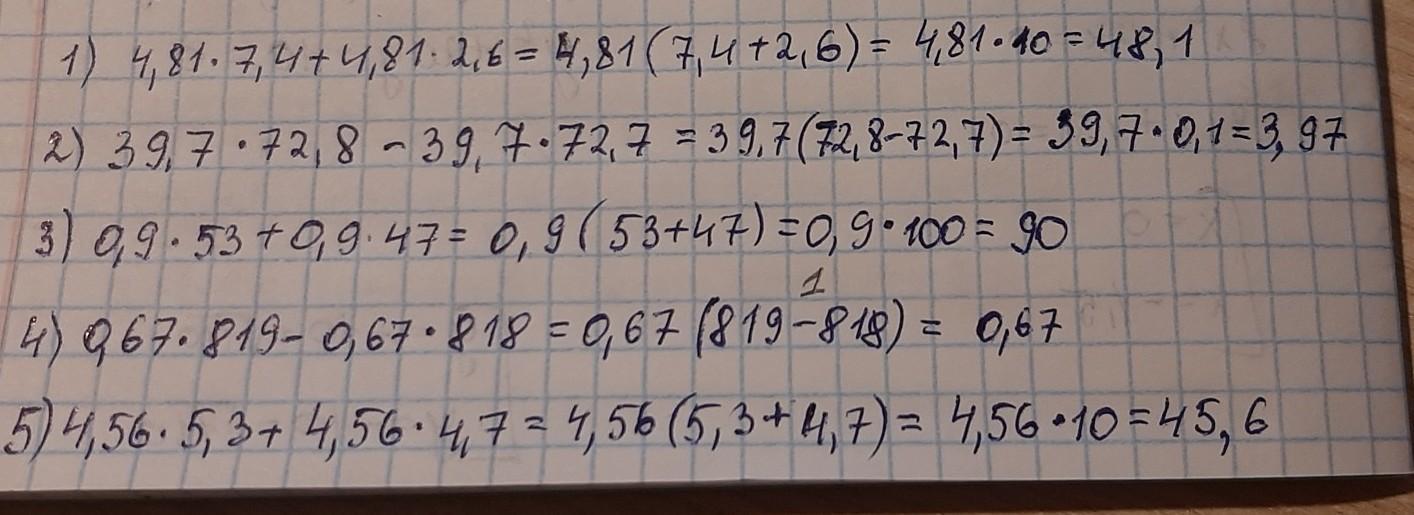 1) 4,81·7,4+4,81·2,6=4,81(7,4+2,6)=4,81·10=48,1
2) 39,7·72,8-39,7·72,7=39,7(72,8-72,7)=39,7·0,1=3,97
3) 0,9·53+0,9·47=0,9(53+47)=0,9·100=90
1
4) 0,67·819-0,67·818=0,67(819-818)=0,67
5) 4,56·5,3+4,56·4,7=4,56(5,3+4,7)=4,56·10=45,6